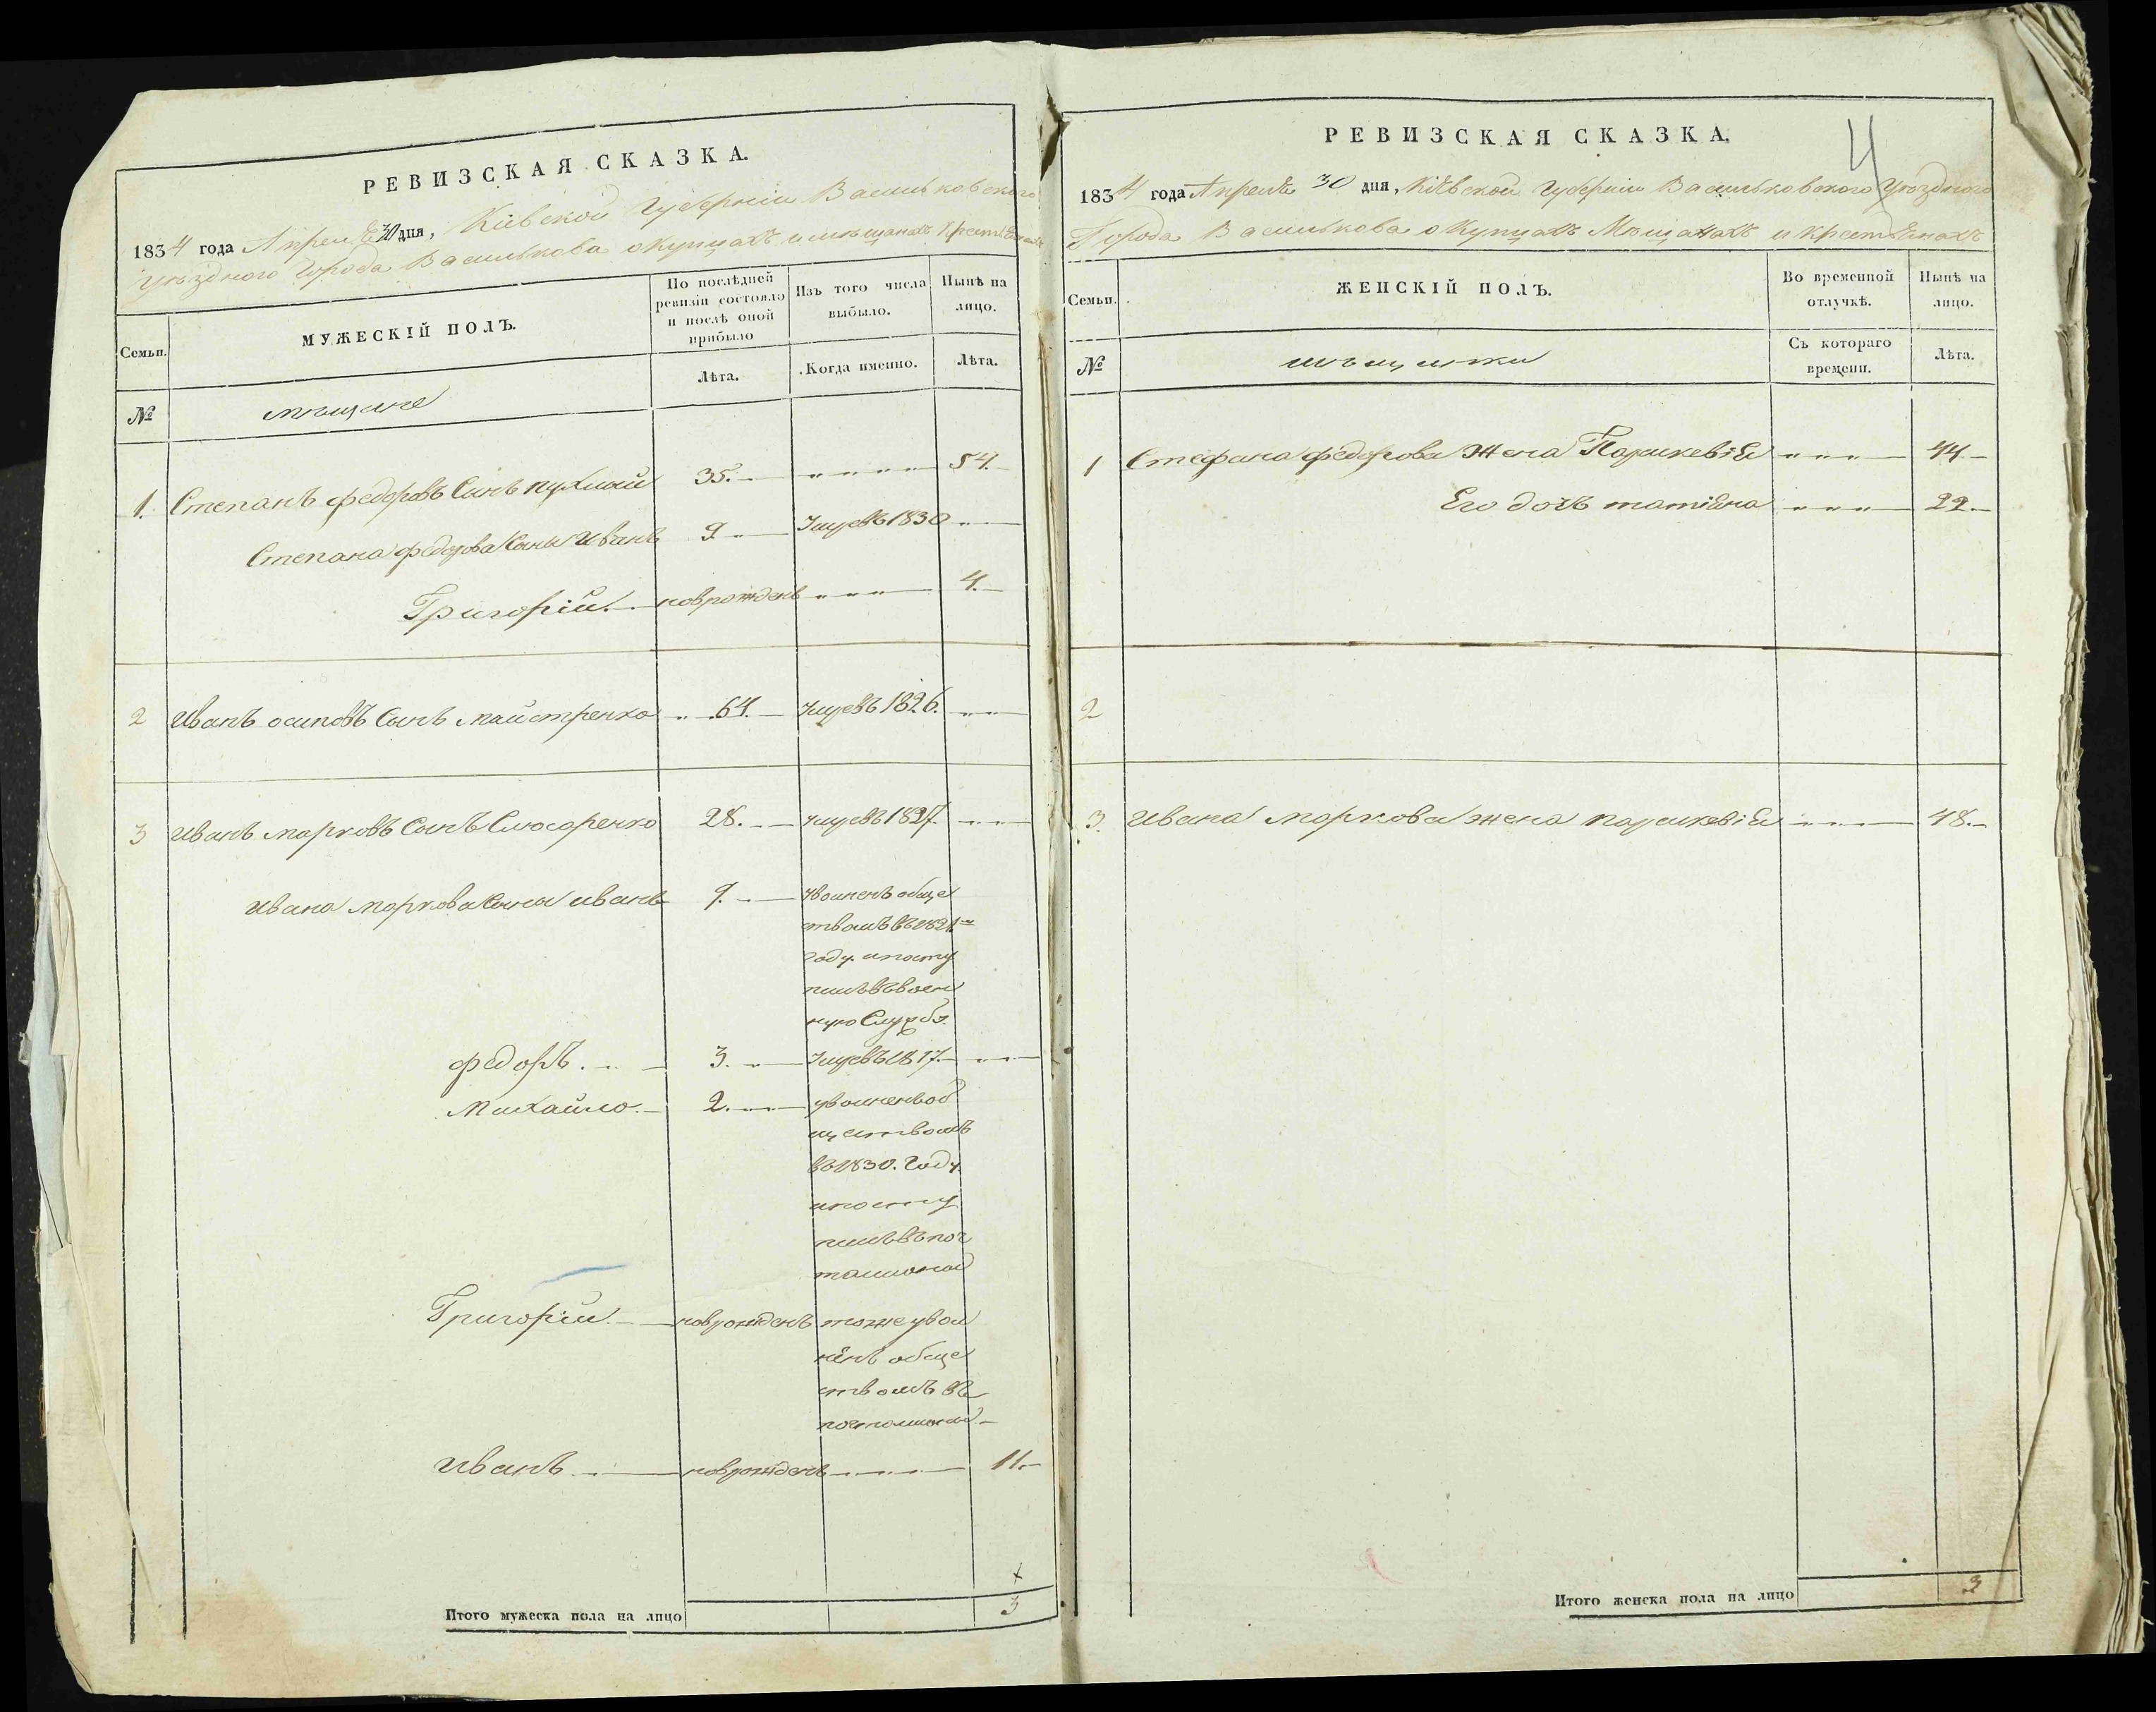 РЕВИЗСКАЯ СКАЗКА.
1834 года Апреля 30 дня, Кіевской Губерніи Васильковского
уѣздного Города Василькова о Купцахъ и мѣщанахъ Крестьянахъ
Семьи.
МУЖЕСКІЙ ПОЛЪ.
По послѣдней ревизіи состояло и послѣ оной прибыло
Изъ того числа выбыло.
Нынѣ на лицо.
Лѣта.
Когда именно.
Лѣта.
№
мѣщане
1. Степанъ федоровъ Сынъ 35. 54.
Степана федорова Сыны Иванъ 9 Умре въ 1830
Григорій. новрожденъ 4.
2 Иванъ осиповъ Сынъ майстренко 64. Умре въ 1826.
3 Иванъ марковъ Сынъ Слюсаренко 28. умре въ 1827.
Ивана маркова Сыны иванъ 9. уволненъ обще
ствомъ въ 1821м
году и посту
пилъ въ воен
ную Службу.
федоръ. 3. Умре въ 1817.
Михайло. 2. уволненъ об
ществомъ
въ 1830. Году
и посту
пилъ въ поч
талионы
Григорій. новрожденъ тоже увол
ненъ обще
ствомъ въ
почталионы
Иванъ новрожденъ 11.
Итого мужеска пола на лицо 3
РЕВИЗСКАЯ СКАЗКА,
4
1834 года Апреля 30 дня, Кіевской Губерніи Васильковского Уѣздного
Города Василькова о Купцахъ Мѣщанахъ и Крестьянахъ
Семьи.
ЖЕНСКІЙ ПОЛЪ.
Во временной отлучкѣ.
Нынѣ на лицо.
Съ котораго времени.
Лѣта.
№
мѣщанки
1 Стефана федорова Жена Параскевія 44
Его дочь татіяна 22.
2
3. Ивана маркова жена параскевія 48.
Итого женска пола на лицо 3